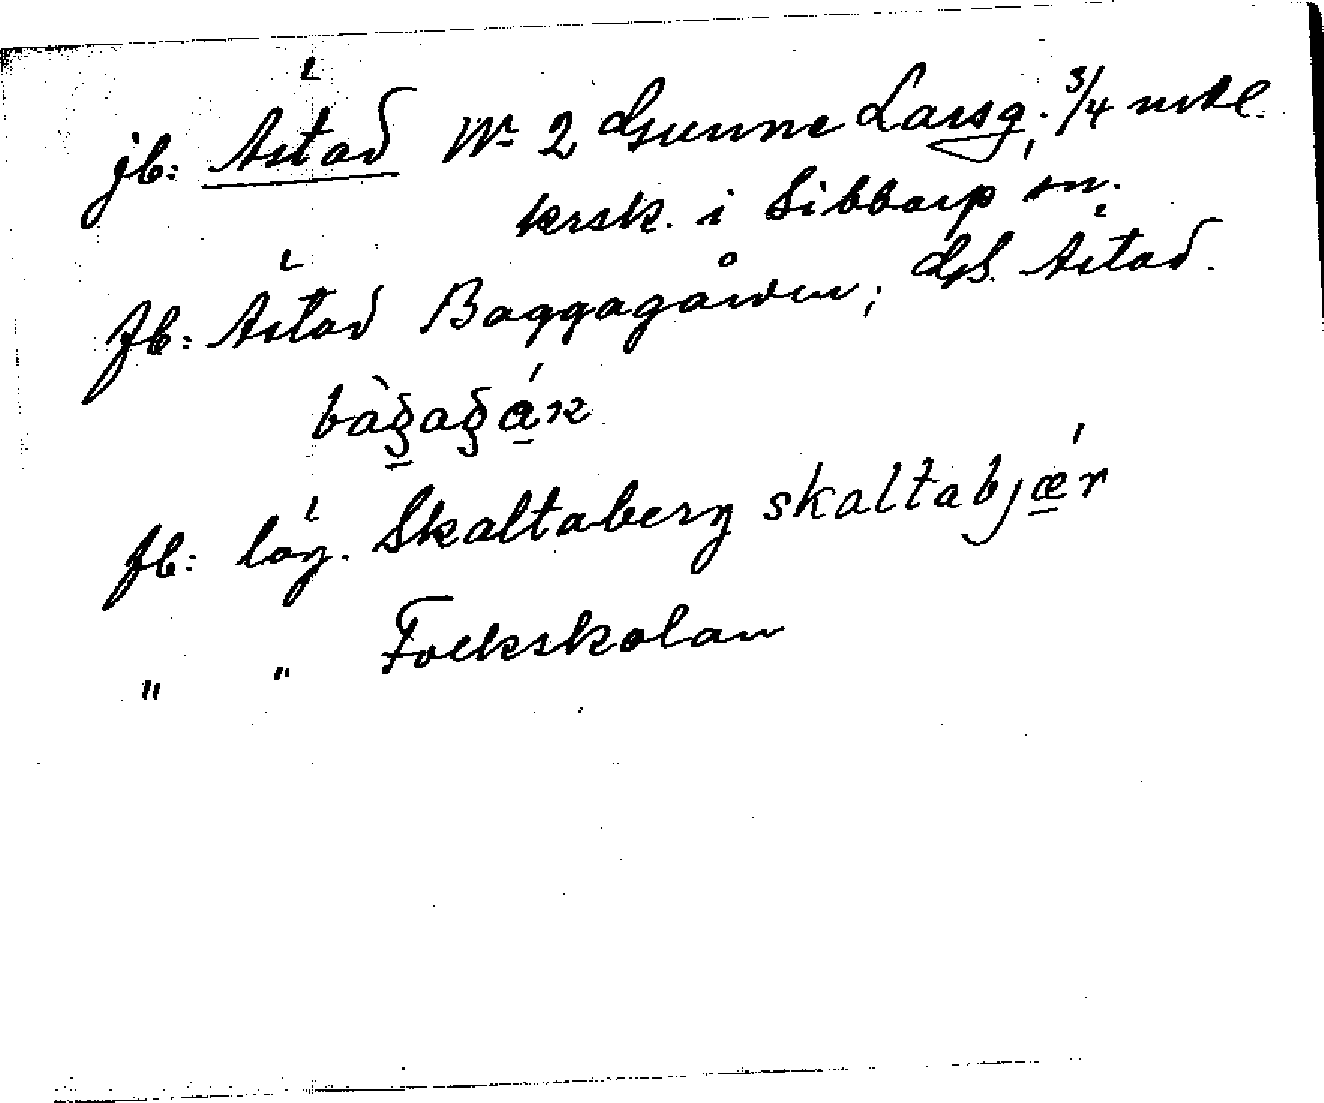 jb: Åstad Nr 2 Gunne Larsg. 3/4 mtl.
krsk. i Sibbarp sn.
fb: Åstad Baggagården; ds. Åstad.
fb: läg. Skaltaberg skaltabjær
" " Folkskolan